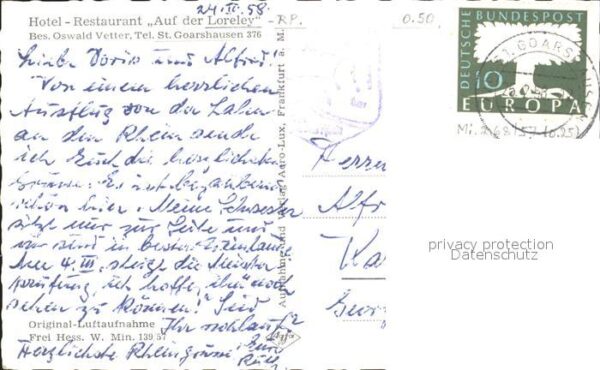 24.II.58.
Hotel - Restaurant „Auf der Loreley" - RP.
Bes. Oswald Vetter, Tel. St. Goarshausen 376
0.50
Liebe Doris und Alfred!
Von einem herrlichen
Ausflug von der Lahn
an den Rhein sende
ich Euch die herzlichsten
Grüsse. Es ist
schon hier. Meine Schwester
sitzt mir zur Seite und
wir sind in bester
4. III. steigt die Meister
prüfung ich hoffe,
sehen zu können! Seid
Ihr wohlauf?
Herzlichste
Original-Luftaufnahme
Frei Hess. W. Min. 139 57
Aufnahme und Verlag Aero-Lux, Frankfurt a. M.
DEUTSCHE BUNDESPOST
10
EUROPA
ST. GOARSHAUSEN
Mi. 268 57 (0.25)
Herrn
Alfr
Ka
Geor
privacy protection
Datenschutz